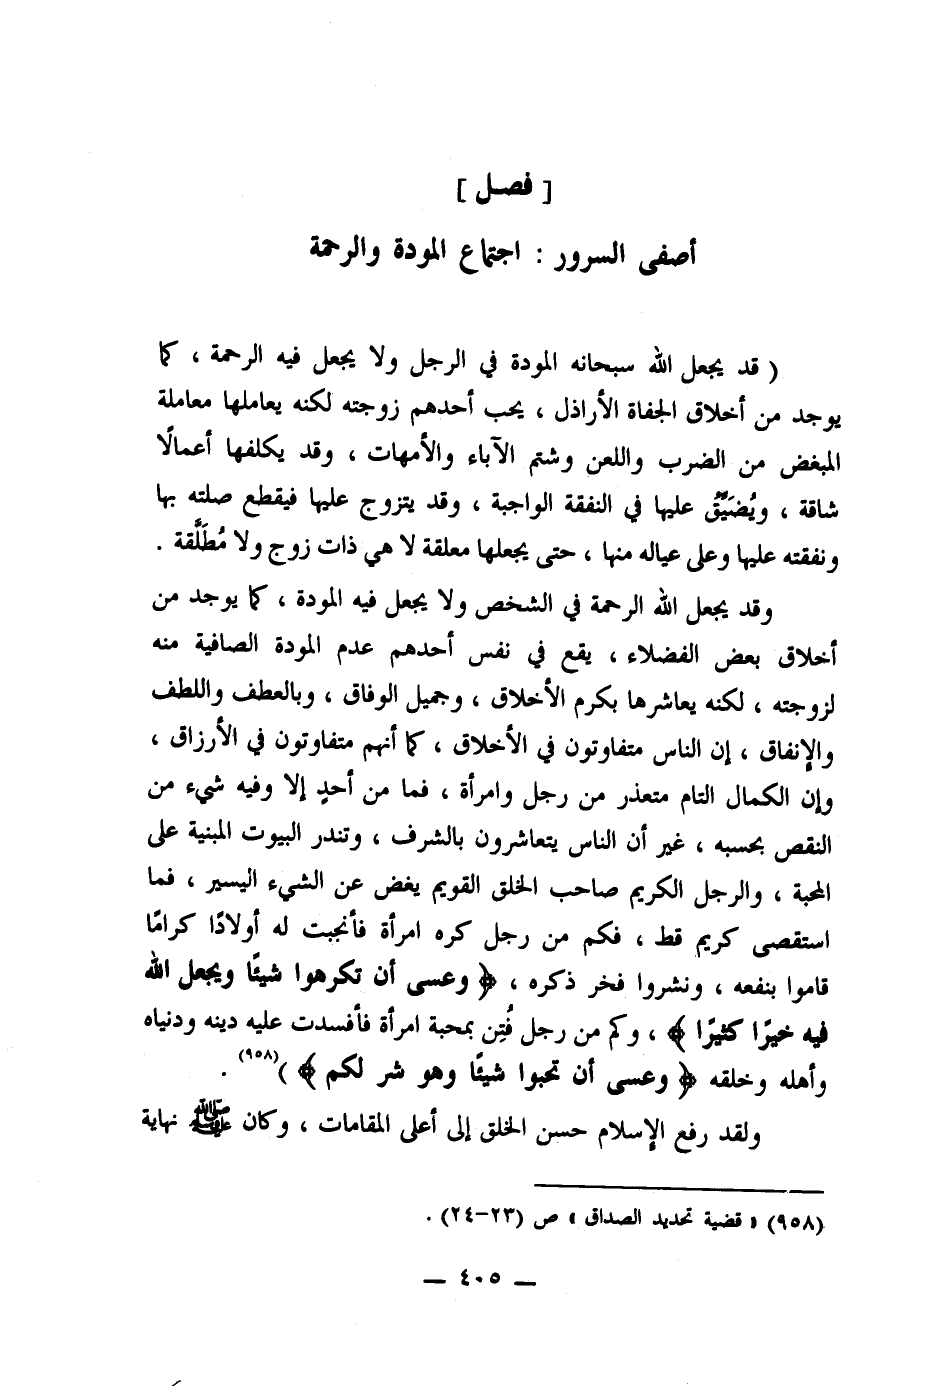 [ فصل ]
أصفى السرور : اجتماع المودة والرحمة
( قد يجعل الله سبحانه المودة في الرجل ولا يجعل فيه الرحمة ، كما
يوجد من أخلاق الجفاة الأراذل ، يحب أحدهم زوجته لكنه يعاملها معاملة
المبغض من الضرب واللعن وشتم الآباء والأمهات ، وقد يكلفها أعمالًا
شاقة ، ويُضَيِّقُ عليها في النفقة الواجبة ، وقد يتزوج عليها فيقطع صلته بها
ونفقته عليها وعلى عياله منها ، حتى يجعلها معلقة لا هي ذات زوج ولا مُطَلَّقة .
وقد يجعل الله الرحمة في الشخص ولا يجعل فيه المودة ، كما يوجد من
أخلاق بعض الفضلاء ، يقع في نفس أحدهم عدم المودة الصافية منه
لزوجته ، لكنه يعاشرها بكرم الأخلاق ، وجميل الوفاق ، وبالعطف واللطف
والإنفاق ، إن الناس متفاوتون في الأخلاق ، كما أنهم متفاوتون في الأرزاق ،
وإن الكمال التام متعذر من رجل وامرأة ، فما من أحدٍ إلا وفيه شيء من
النقص بحسبه ، غير أن الناس يتعاشرون بالشرف ، وتندر البيوت المبنية على
المحبة ، والرجل الكريم صاحب الخلق القويم يغض عن الشيء اليسير ، فما
استقصى كريم قط ، فكم من رجل كره امرأة فأنجبت له أولادًا كرامًا
قاموا بنفعه ، ونشروا فخر ذكره ، ﴿ وعسى أن تكرهوا شيئًا ويجعل الله
فيه خيرًا كثيرًا ﴾ ، وكم من رجل فُتِن بمحبة امرأة فأفسدت عليه دينه ودنياه
وأهله وخلقه ﴿ وعسى أن تحبوا شيئًا وهو شر لكم ﴾ )(٩٥٨) .
ولقد رفع الإسلام حسن الخلق إلى أعلى المقامات ، وكان ﷺ نهاية
(٩٥٨) « قضية تحديد الصداق » ص (٢٣-٢٤) .
— ٤٠٥ —